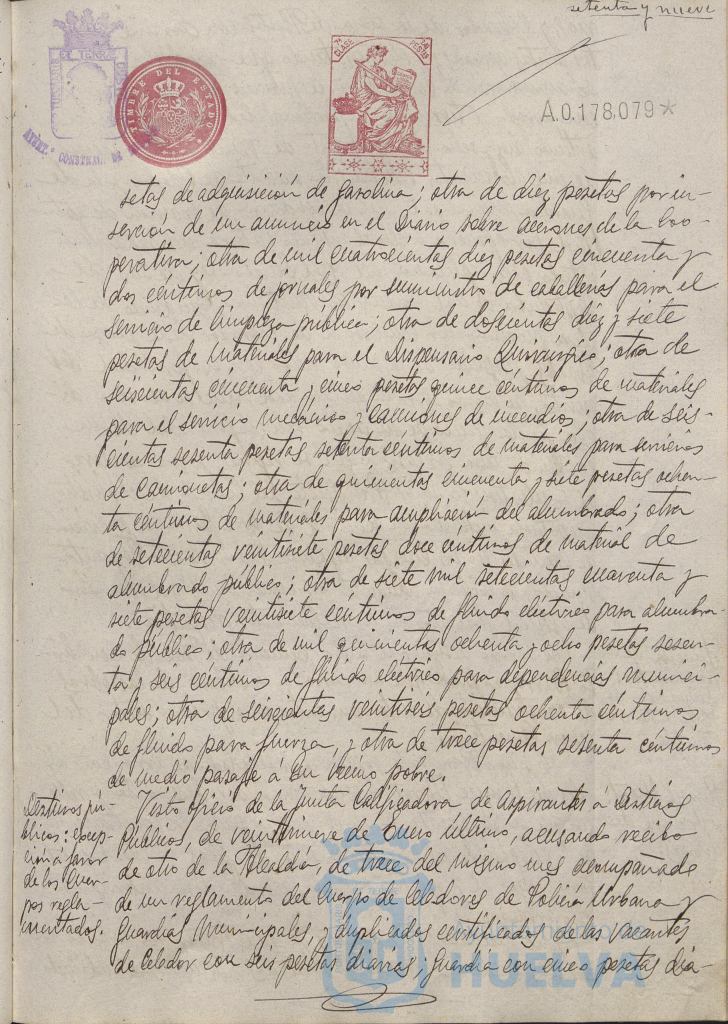 setenta y nueve
7ª CLASE
UN PESETA
TIMBRE DEL ESTADO
A.0.178,079*
setas de adquisición de gasolina; otra de diez pesetas por in-
serción de un anuncio en el Diario sobre acciones de la Coo-
perativa; otra de mil cuatrocientas diez pesetas cincuenta y
dos céntimos de jornales por suministro de caballerías para el
servicio de limpieza pública; otra de doscientas diez y siete
pesetas de materiales para el Dispensario Quirúrgico; otra de
seiscientas cincuenta y cinco pesetas quince céntimos de materiales
para el servicio mecánico y camiones de incendios; otra de seis-
cientas sesenta pesetas setenta céntimos de materiales para servicios
de camionetas; otra de quinientas cincuenta y siete pesetas ochen-
ta céntimos de materiales para ampliación del alumbrado; otra
de setecientas veintisiete pesetas doce céntimos de material de
alumbrado público; otra de siete mil setecientas cuarenta y
siete pesetas veintisiete céntimos de fluido eléctrico para alumbra-
do público; otra de mil quinientas ochenta y ocho pesetas sesen-
ta y seis céntimos de fluido eléctrico para dependencias munici-
pales; otra de seiscientas veintiseis pesetas ochenta céntimos
de fluido para fuerza, y otra de trece pesetas sesenta céntimos
de medio pasaje á un vecino pobre.
Destinos pú-
blicos: excep-
ción á favor
de los Cuer-
pos regla-
mentados.
Visto oficio de la Junta Calificadora de Aspirantes á Destinos
Públicos, de veintinueve de Enero último, acusando recibo
de otro de la Alcaldía, de trece del mismo mes acompañado
de un reglamento del Cuerpo de Celadores de Policía Urbana y
Guardias Municipales, y duplicados certificados de las vacantes
de Celador con seis pesetas diarias; Guardia con cinco pesetas dia-
HUELVA